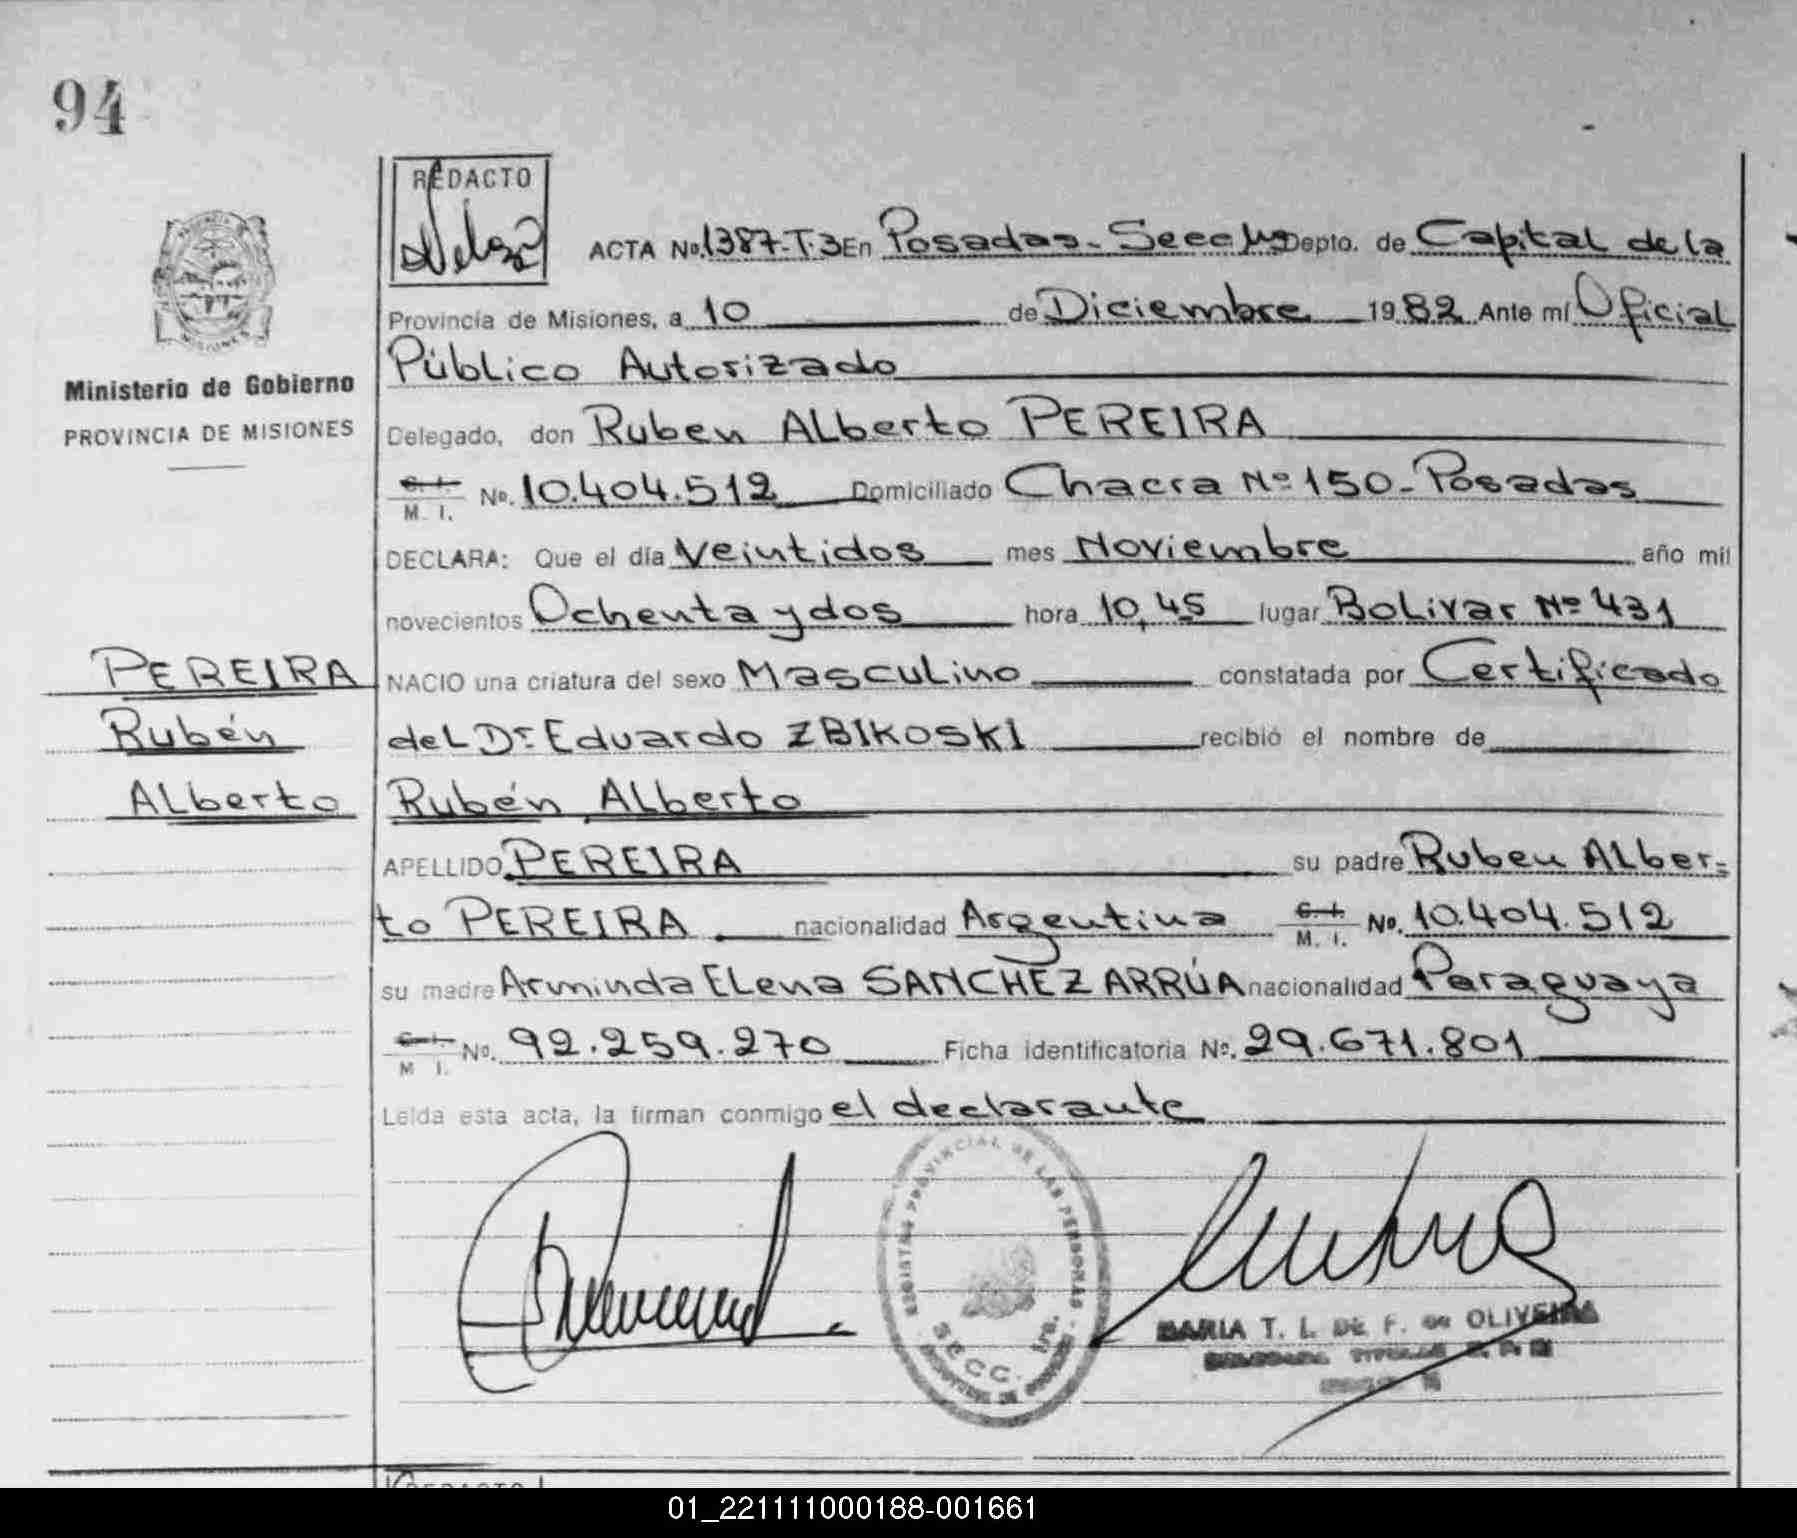 94
REDACTO
ACTA No. 1387-T.3 En Posadas - Secc. Depto. de Capital de la
Provincia de Misiones, a 10 de Diciembre 1982 Ante mí Oficial
Público Autorizado
Ministerio de Gobierno
PROVINCIA DE MISIONES
Delegado, don Ruben Alberto PEREIRA
C. I.
M. I. No. 10.404.512 Domiciliado Chacra Nº 150 - Posadas
DECLARA: Que el día Veintidos mes Noviembre año mil
novecientos Ochenta y dos hora 10,45 lugar Bolivar Nº 431
PEREIRA
NACIO una criatura del sexo Masculino constatada por Certificado
Rubén
del Dr. Eduardo ZBIKOSKI recibió el nombre de
Alberto
Rubén Alberto
APELLIDO PEREIRA su padre Ruben Alber=
to PEREIRA nacionalidad Argentina C. I.
M. I. No. 10.404.512
su madre Arminda Elena SANCHEZ ARRÚA nacionalidad Paraguaya
C. I.
M I. No. 92.259.270 Ficha identificatoria No. 29.671.801
Leída esta acta, la firman conmigo el declarante
REGISTRO PROVINCIAL DE LAS PERSONAS
SECC. 1ra.
MARIA T. I. DE F. de OLIVEIRA
REDACTO
01_221111000188-001661